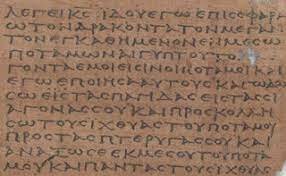 ΛΕΓΕΙΚϹΙΔΟΥΕΓΩΕΠΙϹΕΦΑΡΑ
ΩΤΟΝΔΡΑΚΟΝΤΑΤΟΝΜΕΓΑΝ
ΤΟΝΕΓΚΑΘΗΜΕΝΟΝΕΜΜΕϹΩ
ΠΟΤΑΜΩΝΑΙΓΥΠΤΟΥ
ΓΟΝΤΑΕΜΟΙΕΙϹΙΝΟΙΠΟΤΑΜΟΙΚΑΙ
ΕΓΩΕΠΟΙΗϹΑΑΥΤΟΥϹΚΑΙΕΓΩΔΩ
ϹΩΕΙϹΤΑϹΠΑΓΙΔΑϹΕΙϹΤΑϹϹΙ
ΑΓΟΝΑϹϹΟΥΚΑΙΠΡΟϹΚΟΛΛΗ
ϹΩΤΟΥϹΙΧΘΥΑϹΤΟΥΠΟΤΑΜΟΥ
ΠΡΟϹΤΑϹΠΤΕΡΥΓΑϹϹΟΥΚΑΙ
ΑΝΑΞΩϹΕΕΚΜΕϹΟΥΤΟΥΠΟΤΑ
ΜΟΥΚΑΙΠΑΝΤΑϹΤΟΥϹΙΧΘΥΑϹ